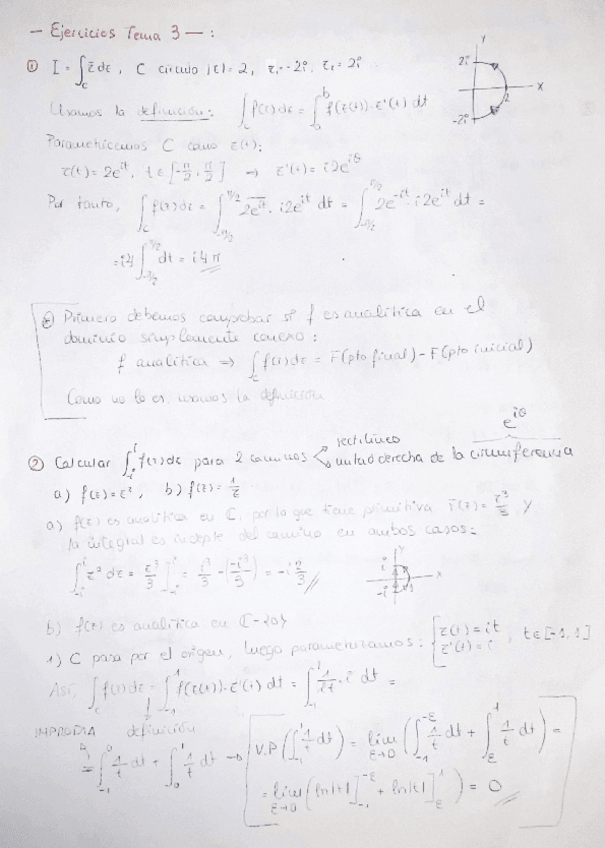 - Ejercicios Tema 3 - :
① I = ∫_C z̄ dz, C círculo |z| = 2, z₁ = -2i, z₂ = 2i
Y
2i
X
2
-2i
Usamos la definición: ∫_C f(z) dz = ∫_a^b f(z(t)) · z'(t) dt
Parametricemos C como z(t):
z(t) = 2e^{it}, t ∈ [-π/2, π/2] → z'(t) = i2e^{iθ}
Por tanto, ∫_C f(z) dz = ∫_{-π/2}^{π/2} \overline{2e^{it}} · i2e^{it} dt = ∫_{-π/2}^{π/2} 2e^{-it} · i2e^{it} dt =
= i4 ∫_{-π/2}^{π/2} dt = i4π
Primero debemos comprobar si f es analítica en el
dominio simplemente conexo:
f analítica ⇒ ∫_C f(z) dz = F(pto final) - F(pto inicial)
Como no lo es, usamos la definición
e^{iθ}
② Calcular ∫_{-i}^{i} f(z) dz para 2 caminos
rectilíneo
mitad derecha de la circunferencia
a) f(z) = z², b) f(z) = 1/z
a) f(z) es analítica en ℂ, por lo que tiene primitiva F(z) = z³/3 y
la integral es indepte del camino en ambos casos:
∫_{-i}^{i} z² dz = z³/3 ]_{-i}^{i} = i³/3 - (-i³/3) = -i 2/3
Y
i
X
-i
b) f(z) es analítica en ℂ-{0}
1) C pasa por el origen, luego parametrizamos: { z(t) = it
z'(t) = i , t ∈ [-1, 1]
Así, ∫_C f(z) dz = ∫_{-1}^{1} f(z(t)) · z'(t) dt = ∫_{-1}^{1} 1/it · i dt =
definición
IMPROPIA
= ∫_{-1}^{0} 1/t dt + ∫_0^1 1/t dt → V.P (∫_{-1}^{1} 1/t dt) = lim_{ε→0} (∫_{-1}^{-ε} 1/t dt + ∫_ε^1 1/t dt) =
= lim_{ε→0} (ln|t| ]_{-1}^{-ε} + ln|t| ]_ε^1) = 0